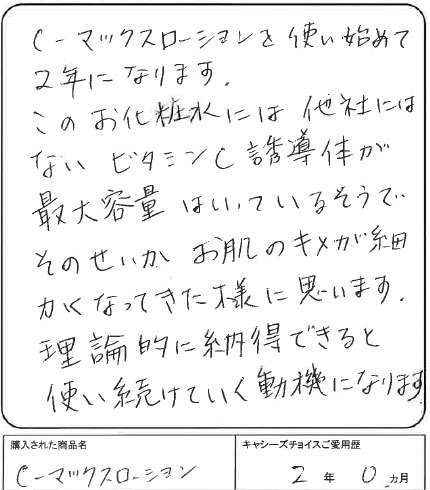 C-マックスローションを使い始めて
2年になります.
このお化粧水には他社には
ない ビタミンC誘導体が
最大容量 はいっているそうで
そのせいか お肌のキメが細
かくなってきた様に思います.
理論的に納得できると
使い続けていく動機になります
購入された商品名
C-マックスローション
キャシーズチョイスご愛用歴
2 年 0 ヵ月